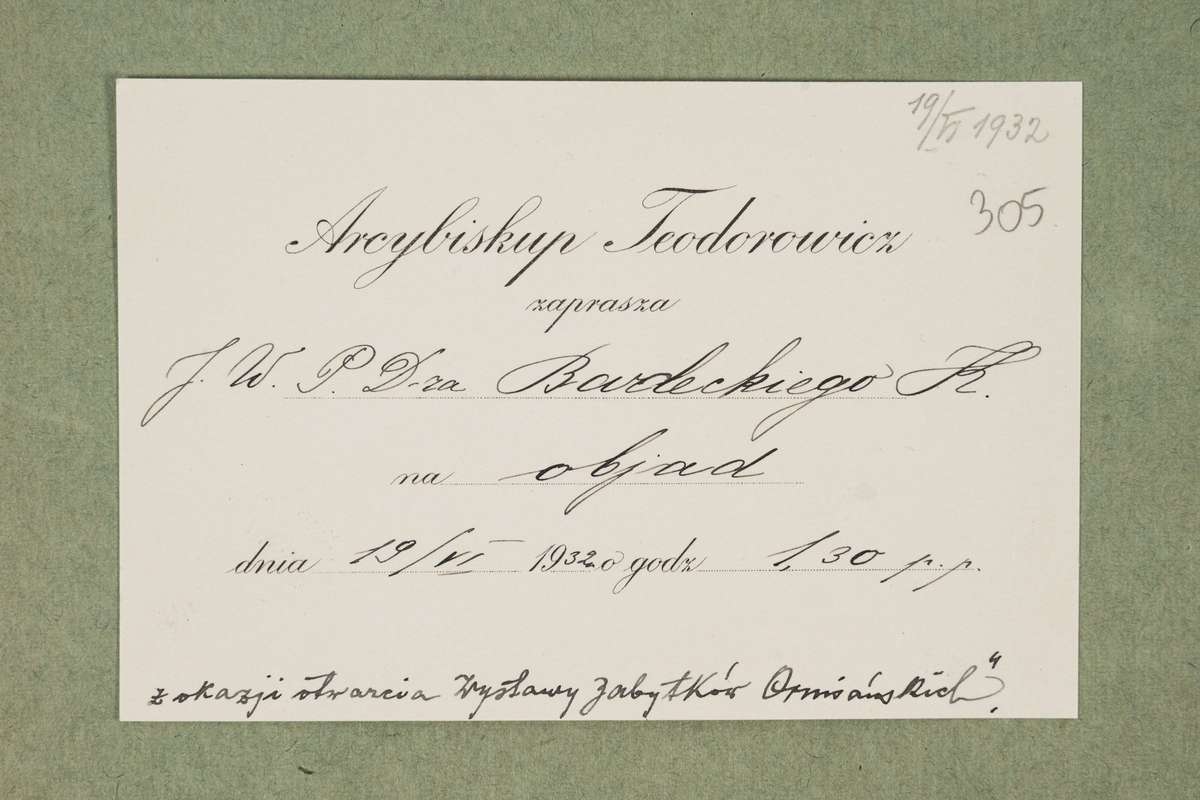 19/VI 1932
305
Arcybiskup Teodorowicz
zaprasza
J. W. P. D-ra Badeckiego K.
na objad
dnia 19/VI 1932 o godz 1,30 p. p.
z okazji otwarcia Wystawy Zabytków Ormiańskich".